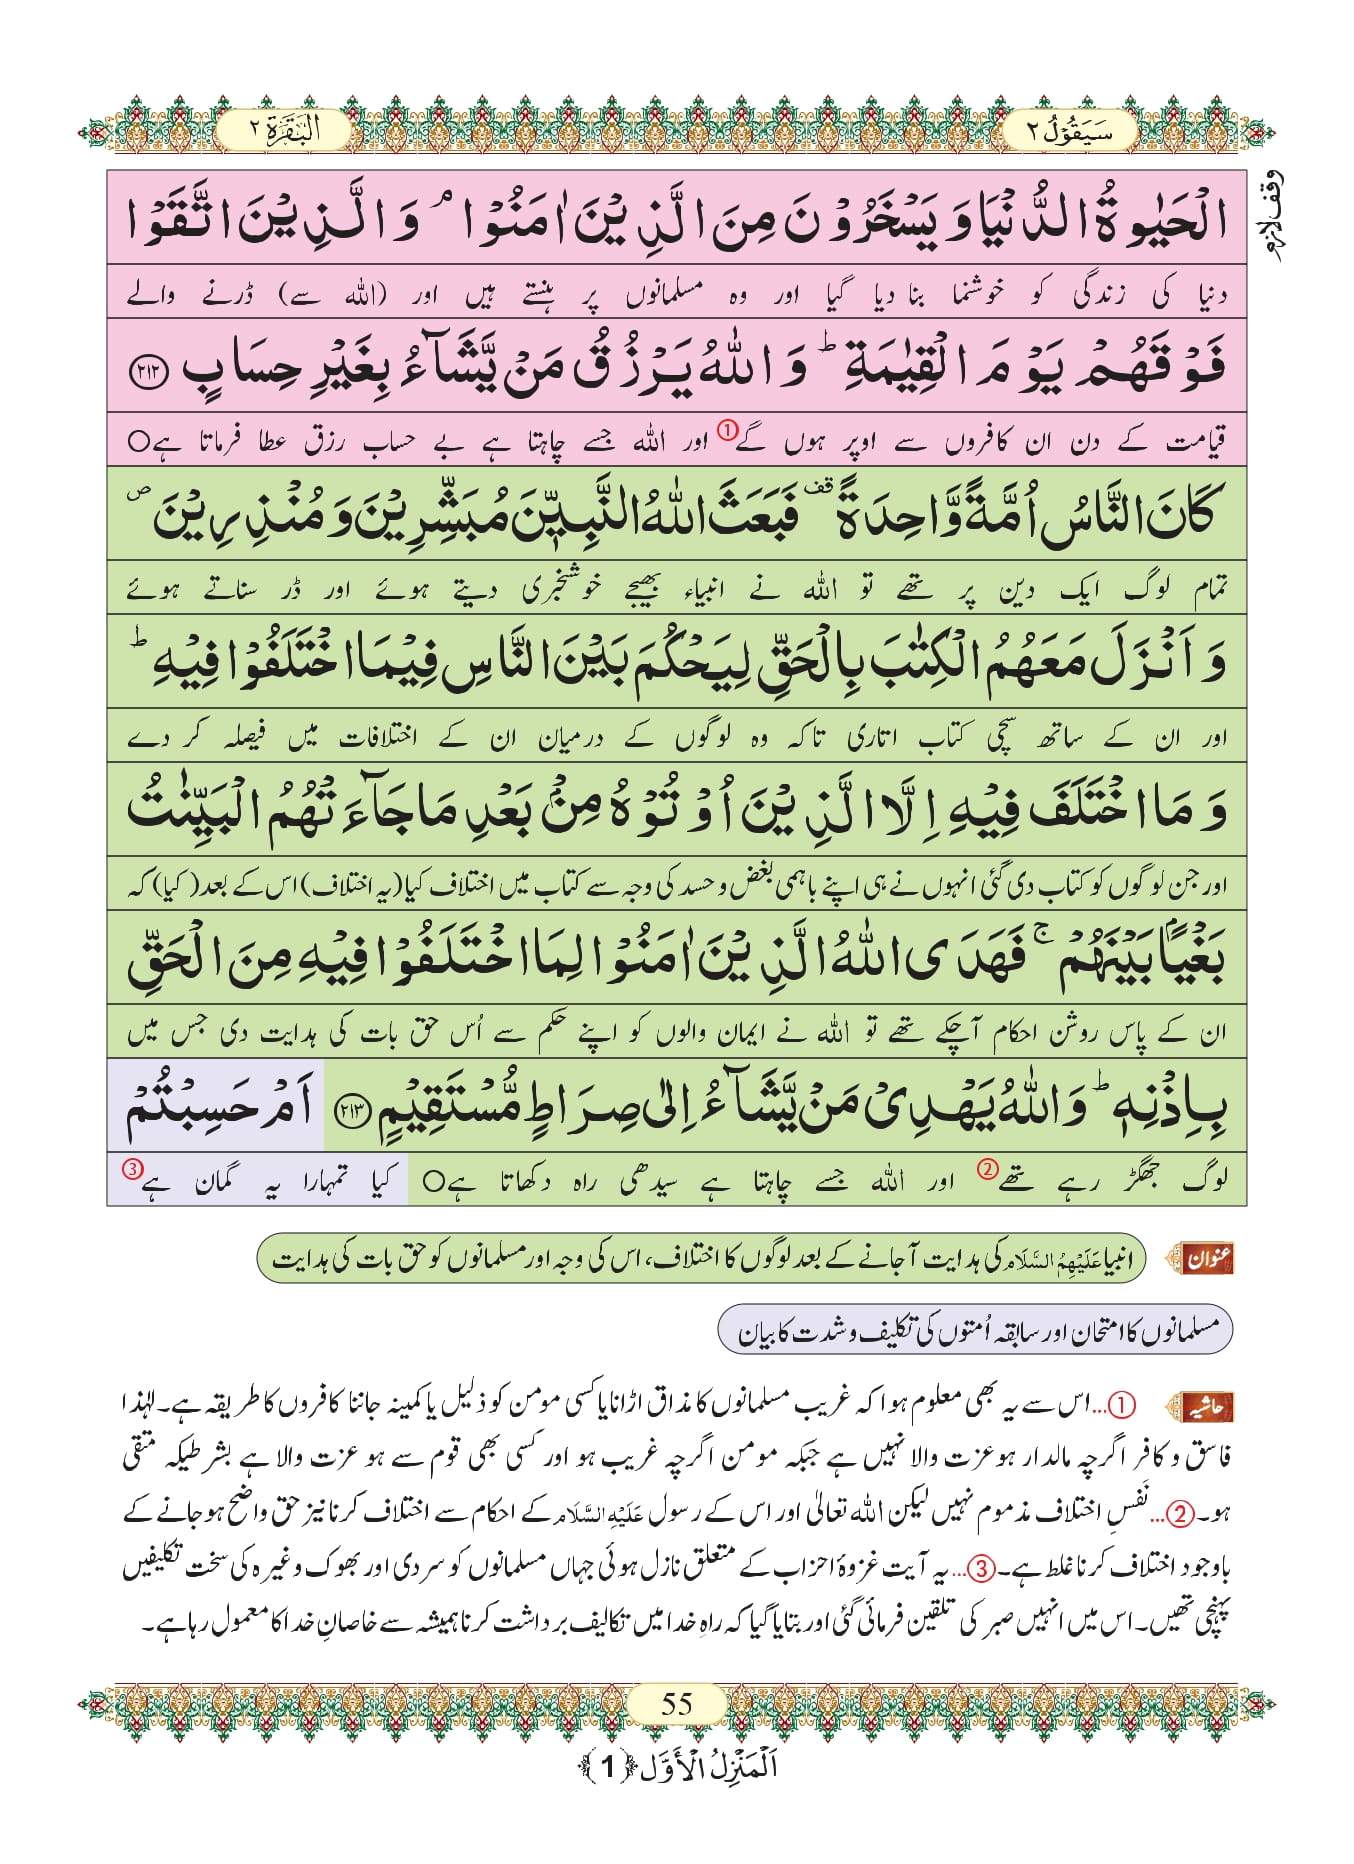 سَيَقُوْلُ ٢
اَلْبَقَرَة ٢
وقف لازم
الْحَيٰوةُ الدُّنْيَا وَ يَسْخَرُوْنَ مِنَ الَّذِيْنَ اٰمَنُوْا ۘ وَ الَّذِيْنَ اتَّقَوْا
دنیا کی زندگی کو خوشنما بنا دیا گیا اور وہ مسلمانوں پر ہنستے ہیں اور (اللہ سے) ڈرنے والے
فَوْقَهُمْ يَوْمَ الْقِيٰمَةِ ؕ وَ اللّٰهُ يَرْزُقُ مَنْ يَّشَآءُ بِغَيْرِ حِسَابٍ ﴿۲۱۲﴾
قیامت کے دن ان کافروں سے اوپر ہوں گے ① اور اللہ جسے چاہتا ہے بے حساب رزق عطا فرماتا ہے○
كَانَ النَّاسُ اُمَّةً وَّاحِدَةً ۫ فَبَعَثَ اللّٰهُ النَّبِيّٖنَ مُبَشِّرِيْنَ وَ مُنْذِرِيْنَ ۪
تمام لوگ ایک دین پر تھے تو اللہ نے انبیاء بھیجے خوشخبری دیتے ہوئے اور ڈر سناتے ہوئے
وَ اَنْزَلَ مَعَهُمُ الْكِتٰبَ بِالْحَقِّ لِيَحْكُمَ بَيْنَ النَّاسِ فِيْمَا اخْتَلَفُوْا فِيْهِ ؕ
اور ان کے ساتھ سچی کتاب اتاری تاکہ وہ لوگوں کے درمیان ان کے اختلافات میں فیصلہ کر دے
وَ مَا اخْتَلَفَ فِيْهِ اِلَّا الَّذِيْنَ اُوْتُوْهُ مِنْۢ بَعْدِ مَا جَآءَتْهُمُ الْبَيِّنٰتُ
اور جن لوگوں کو کتاب دی گئی انہوں نے ہی اپنے باہمی بغض و حسد کی وجہ سے کتاب میں اختلاف کیا (یہ اختلاف) اس کے بعد (کیا) کہ
بَغْيًۢا بَيْنَهُمْ ۚ فَهَدَى اللّٰهُ الَّذِيْنَ اٰمَنُوْا لِمَا اخْتَلَفُوْا فِيْهِ مِنَ الْحَقِّ
ان کے پاس روشن احکام آچکے تھے تو اللہ نے ایمان والوں کو اپنے حکم سے اُس حق بات کی ہدایت دی جس میں
بِاِذْنِهٖ ؕ وَ اللّٰهُ يَهْدِيْ مَنْ يَّشَآءُ اِلٰى صِرَاطٍ مُّسْتَقِيْمٍ ﴿۲۱۳﴾ اَمْ حَسِبْتُمْ
لوگ جھگڑ رہے تھے ② اور اللہ جسے چاہتا ہے سیدھی راہ دکھاتا ہے○ کیا تمہارا یہ گمان ہے ③
عنوان انبیا عَلَيْهِمُ السَّلَام کی ہدایت آجانے کے بعد لوگوں کا اختلاف، اس کی وجہ اور مسلمانوں کو حق بات کی ہدایت
مسلمانوں کا امتحان اور سابقہ اُمتوں کی تکلیف و شدت کا بیان
حاشیہ ①...اس سے یہ بھی معلوم ہوا کہ غریب مسلمانوں کا مذاق اڑانا یا کسی مومن کو ذلیل یا کمینہ جاننا کافروں کا طریقہ ہے۔ لہٰذا
فاسق و کافر اگرچہ مالدار ہو عزت والا نہیں ہے جبکہ مومن اگرچہ غریب ہو اور کسی بھی قوم سے ہو عزت والا ہے بشرطیکہ متقی
ہو۔ ②...نَفسِ اختلاف مذموم نہیں لیکن اللہ تعالیٰ اور اس کے رسول عَلَيْهِ السَّلَام کے احکام سے اختلاف کرنا نیز حق واضح ہو جانے کے
باوجود اختلاف کرنا غلط ہے۔ ③...یہ آیت غزوۂ احزاب کے متعلق نازل ہوئی جہاں مسلمانوں کو سردی اور بھوک وغیرہ کی سخت تکلیفیں
پہنچی تھیں۔ اس میں انہیں صبر کی تلقین فرمائی گئی اور بتایا گیا کہ راہِ خدا میں تکالیف برداشت کرنا ہمیشہ سے خاصانِ خدا کا معمول رہا ہے۔
55
اَلْمَنْزِلُ الْأَوَّل ﴿1﴾